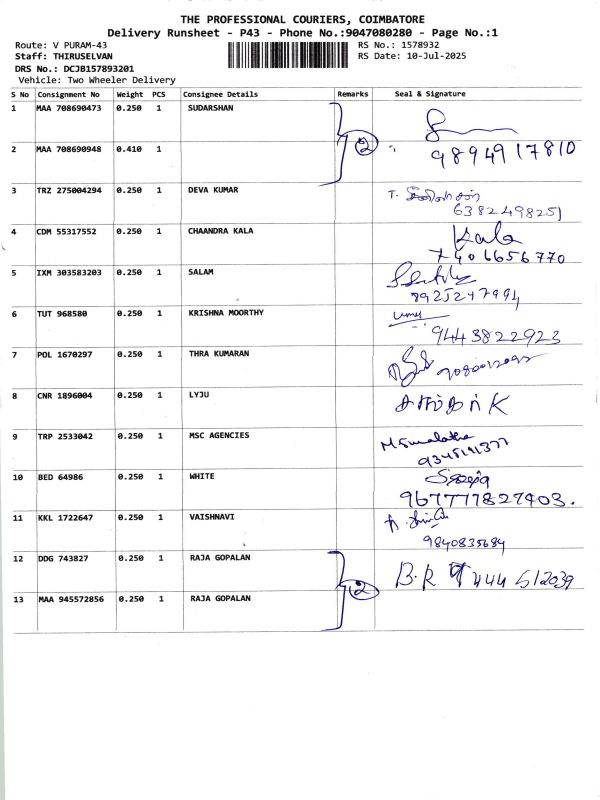 THE PROFESSIONAL COURIERS, COIMBATORE
Delivery Runsheet - P43 - Phone No.:9047080280 - Page No.:1
Route: V PURAM-43
RS No.: 1578932
Staff: THIRUSELVAN
RS Date: 10-Jul-2025
DRS No.: DCJB157893201
Vehicle: Two Wheeler Delivery
S No Consignment No Weight PCS Consignee Details Remarks Seal & Signature
1 MAA 708690473 0.250 1 SUDARSHAN
2
2 MAA 708690948 0.410 1 9894917810
3 TRZ 275004294 0.250 1 DEVA KUMAR T.
6382498251
4 CDM 55317552 0.250 1 CHAANDRA KALA Kala
7406656770
5 IXM 303583203 0.250 1 SALAM
8925247994
6 TUT 968580 0.250 1 KRISHNA MOORTHY
9443822923
7 POL 1670297 0.250 1 THRA KUMARAN
8 CNR 1896004 0.250 1 LYJU K
9 TRP 2533042 0.250 1 MSC AGENCIES
9345191377
10 BED 64986 0.250 1 WHITE
967777827403.
11 KKL 1722647 0.250 1 VAISHNAVI
9840835684
12 DDG 743827 0.250 1 RAJA GOPALAN B.R 9444512039
2
13 MAA 945572856 0.250 1 RAJA GOPALAN